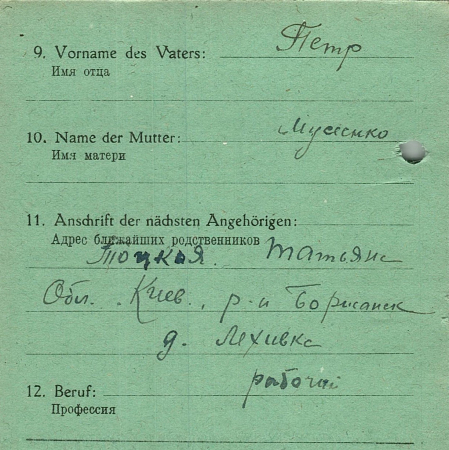 9. Vorname des Vaters: Петр
Имя отца
10. Name der Mutter: Мусіенко
Имя матери
11. Anschrift der nächsten Angehörigen:
Адрес ближайших родственников
Тоцкая Татьяна
Обл. Киев., р-н
д. Лехивка
рабочий
12. Beruf:
Профессия